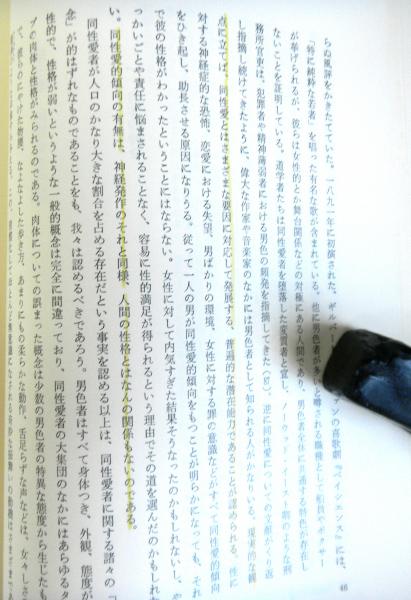 らぬ風評をかきたてていた。一八九一年に初演された、ギルバ
ンの喜歌劇『ペイシェンス』には、
「特に純粋な若者」を唱った有名な歌が含まれている。他に男色者が多いと噂される職種として船員やボクサー
が挙げられるが、彼らは女性的とか舞台関係などの対極にある人間であり、男色者全体に通する特色が存在し
ないことを証明している。道学者たちは同性愛者を堕落した変質者と富し、ノー
務所官吏は、犯罪者や精神薄弱者における男色の頻発を指摘してきた
し指摘し続けてきたように、偉大な作家や音楽家のなかには男色者として知られる人がかなりいる。現実的な観
点に立てば、同性愛とはさまざまな要因に対応して発展する、普遍的な潜在能力であることが認められる。性に
対する神経症的な恐怖、恋愛における失望、男ばかりの環境、女性に対する罪の意識などがすべて同性愛的傾向
をひき起し、助長させる原因になりうる。従って一人の男が同性愛的傾向をもつことが明らかになっても、それ
で彼の性格がわかったということにはならない。女性に対して内気すぎた結果そうなったのかもしれないし、や
っかいごとや責任に悩まされることなく、容易に性的満足が得られるという理由でその道を選んだのかもしれな
い。同性愛的傾向の有無は、神経発作のそれと同様、人間の性格とはなんの関係もないのである。
同性愛者が人口のかなり大きな割合を占める存在だという事実を認める以上は、同性愛者に関する諸々の「
念」が的はずれなものであることをも、我々は認めるべきであろう。男色者はすべて身体つき、外観、態度が
性的で、性格が弱いというような一般的概念は完全に間違っており、同性愛者の大集団のなかにはあらゆるタ
プの肉体と性格がみられるのである。肉体についての誤まった概念は少数の男色者の特異な態度から生じたも
で、彼らのにやけた物腰、なよなよした歩き方、あまりにもの柔らかな動作、舌足らずな声などは、女々しさ
46